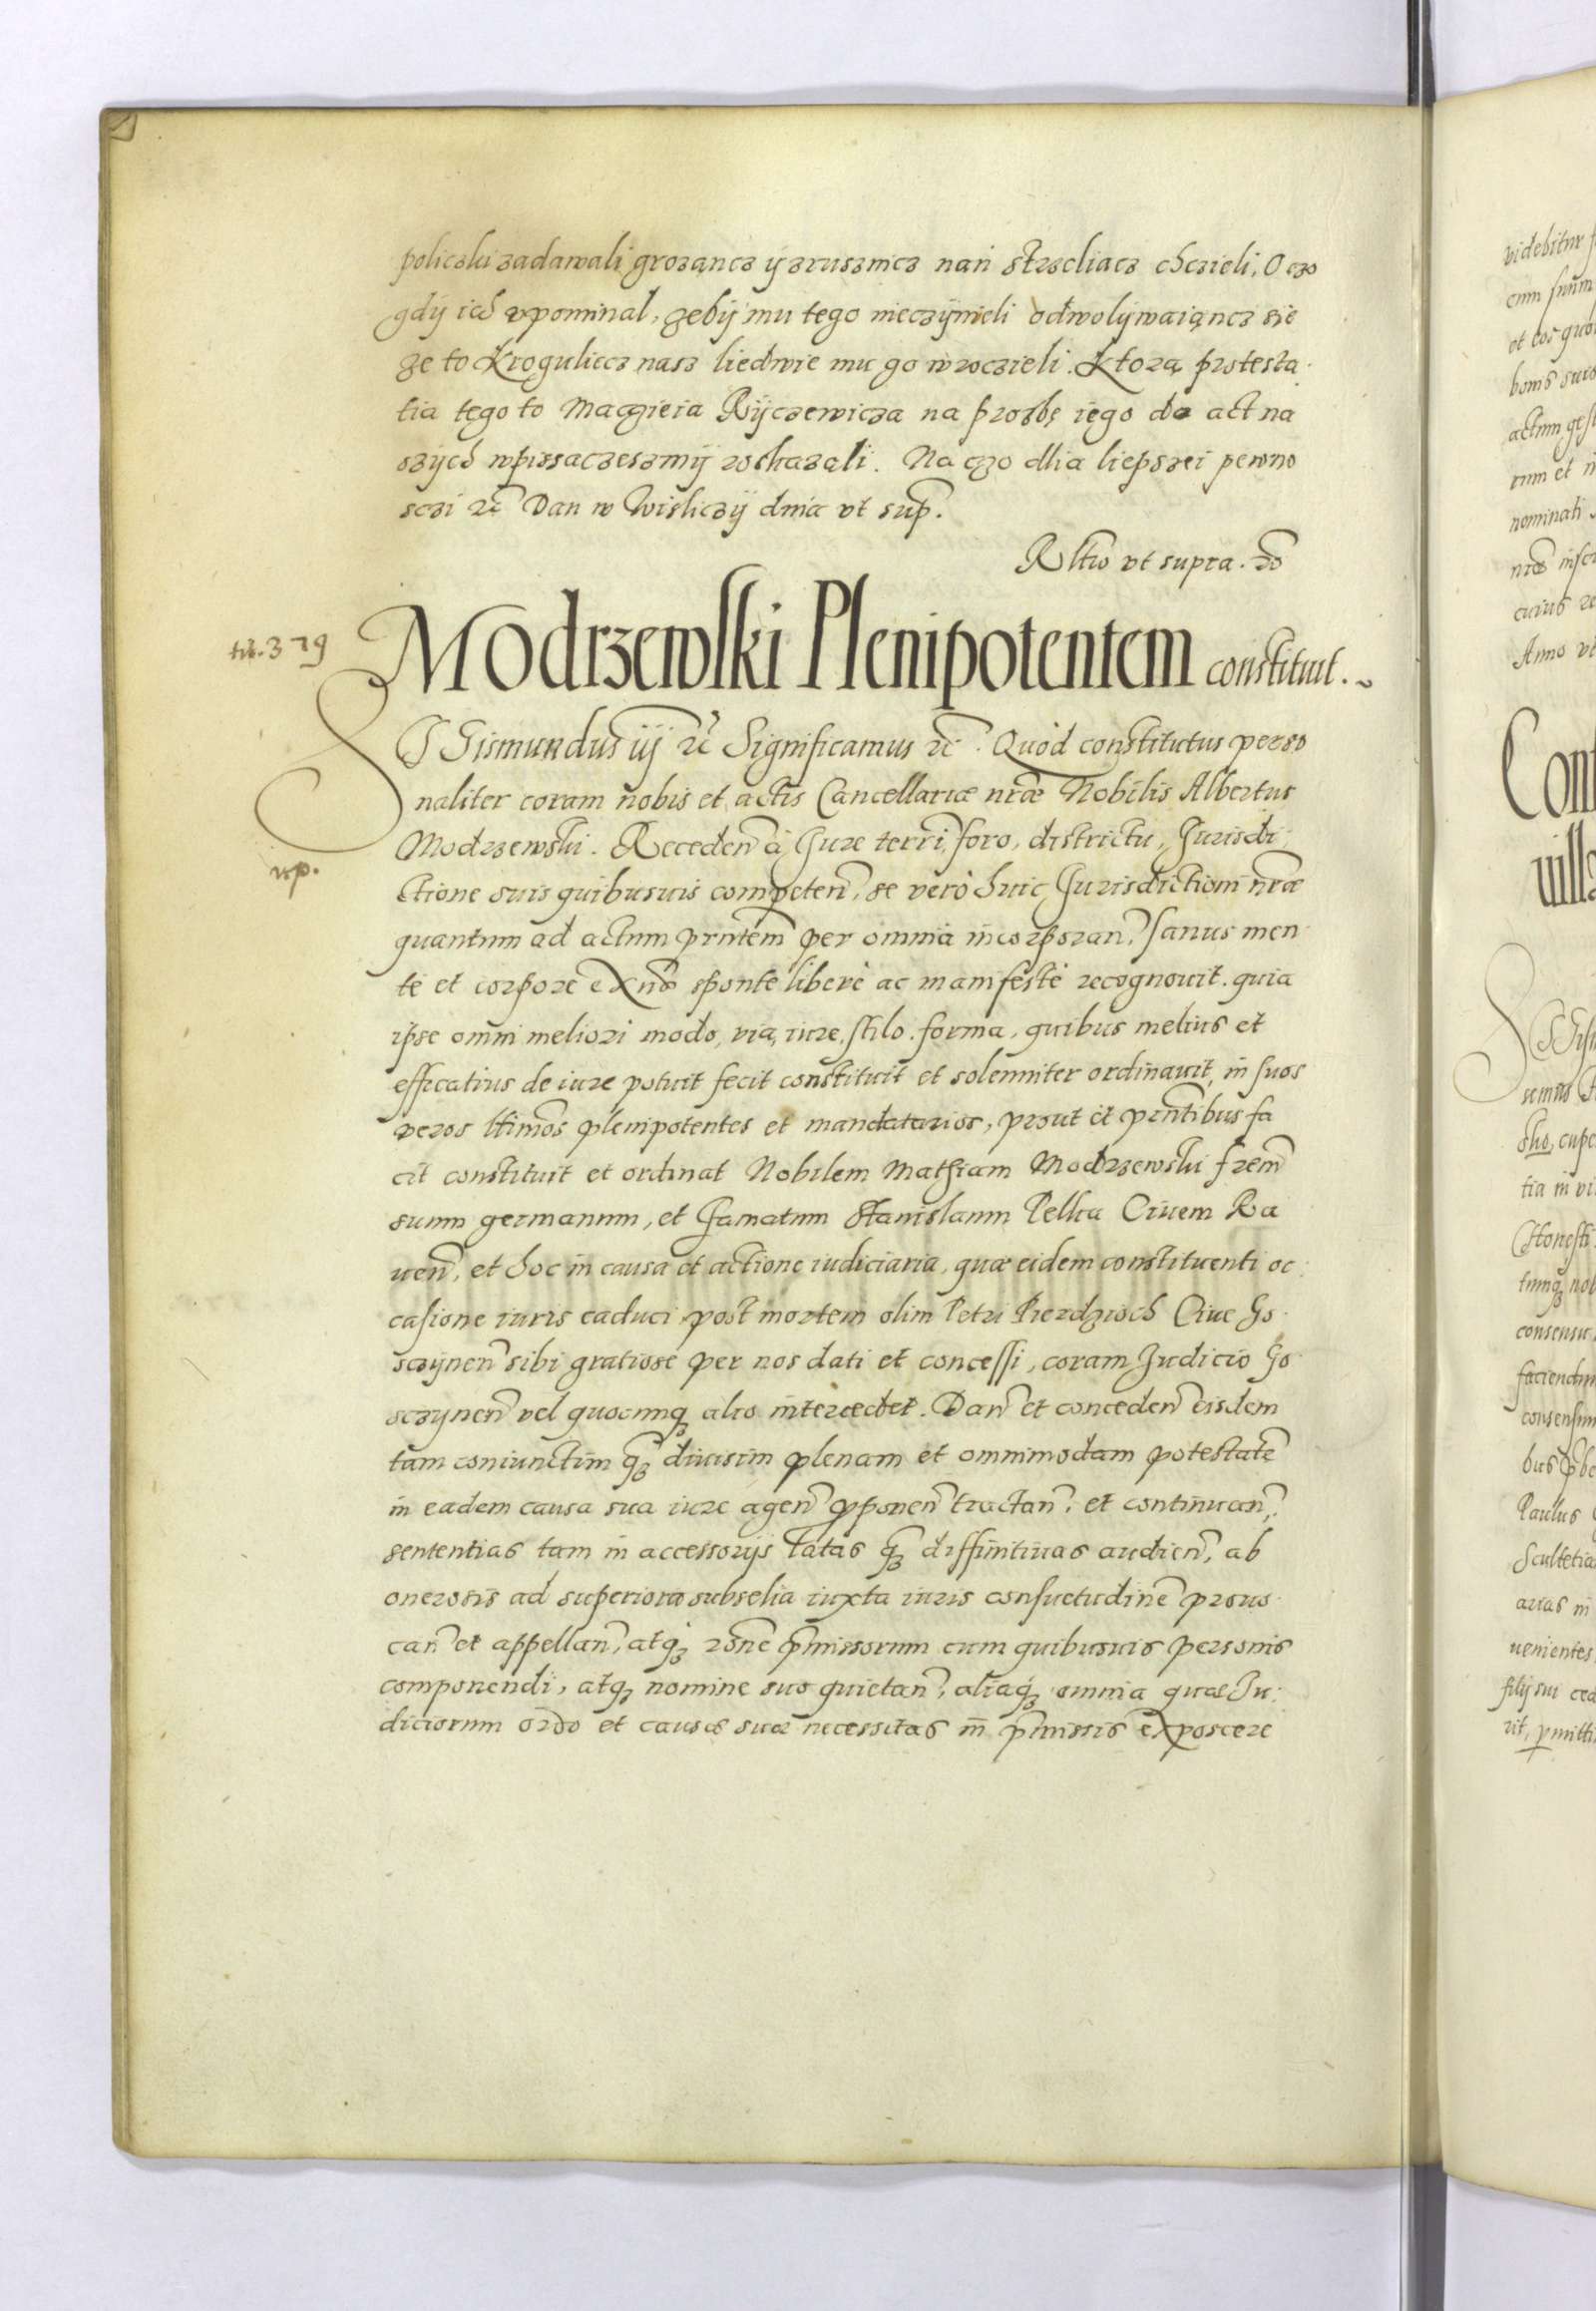 policzki zadawali grozancz ij zrusznicz nań strzeliacz chczieli. O czo
gdij ich vpominal, zebij mu tego nieczijnieli odwolijwaiąncz sie
ze to Kroguliecz nasz liedwie mu go wroczieli. Ktorą protesta
tia tego to Maczieia Rijczewicza na prozbę iego do act na
szijch wpissaczesmij roskazali. Na czo dlia liepszei pewno
sczi &c̃ Dan w Wisliczij dnia vt sup̃.
Rltio vt supra.
tit. 379
Modrzewski Plenipotentem constituit.
SIGismundus iij &c̃ Significamus &c̃. Quod constitutus perso
naliter coram nobis et actis Cancellariæ nr̃æ Nobilis Albertus
Modrzewski. Receden̄ à Jure terri, foro, districtu, Jurisdi
np.
ctione suis quibusuis competen̄, se verò huic Jurisdictioni nr̃æ
quantum ad actum pr̃ntem per omnia incorporan̄, sanus men
te et corpore ex nõ sponte liberè ac manifestè recognouit. quia
ipse omni meliori modo, via, iure, stilo. forma, quibus melius et
efficatius de iure potuit fecit constituit et solenniter ordinauit, in suos
veros ltĩmos plenipotentes et mandatarios, prout et pr̃ntibus fa
cit constituit et ordinat Nobilem Mathiam Modrzewski frem̃
suum germanum, et Famatum Stanislaum Pelka Ciuem Ra
uen̄, et hoc in causa et actione iudiciaria, quæ eidem constituenti oc
casione iuris caduci post mortem olim Petri Pierdzioch Ciue Go
sczijnen̄ sibi gratiose per nos dati et concessi, coram Judicio Go
sczynen̄ vel quocunq3 alio intercedet. Dan̄ et conceden̄ eisdem
tam coniunctim q̃3 diuisim plenam et omnimodam potestatẽ
in eadem causa sua iure agen̄ pponen̄ tractan̄, et continuan̄,
sententias tam in accessorijs latas q̃3 diffinitiuas audien̄, ab
onerosis ad superiora subselia iuxta iuris consuetudinẽ prouo
can̄ et appellan̄, atq3 rõne p̃missorum cum quibusuis personis
componendi, atq3 nomine suo quietan̄, aliaq3 omnia quæ Ju
diciorum ordo et causæ suæ necessitas in p̃missis exposcere